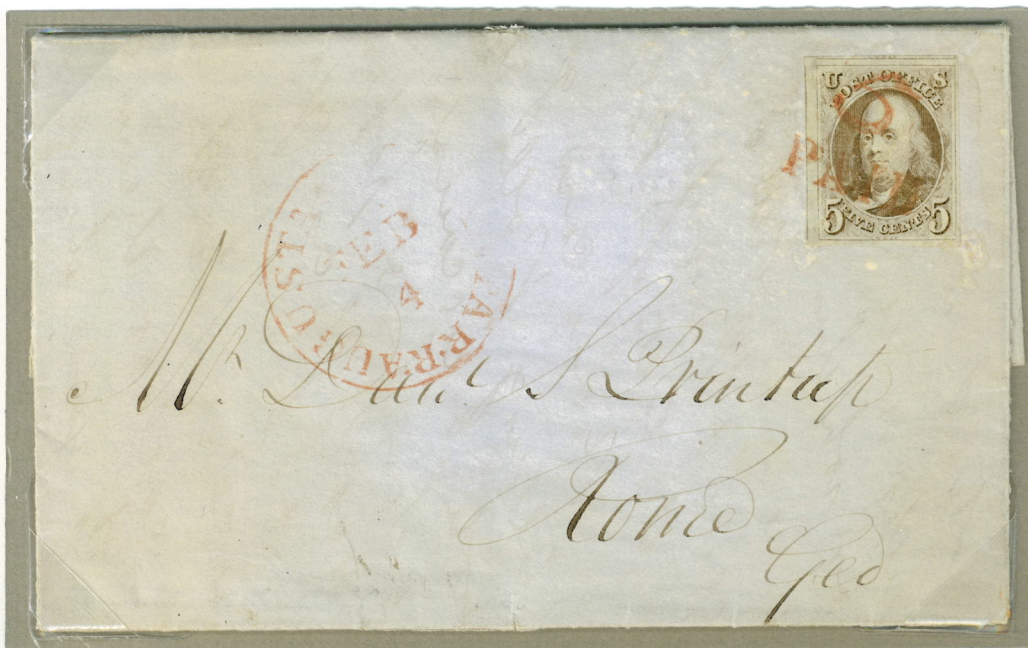 U S
POST OFFICE
5 FIVE CENTS 5
5
PAID
FEB
4
Mr. Davd S Printup
Rome
Geo